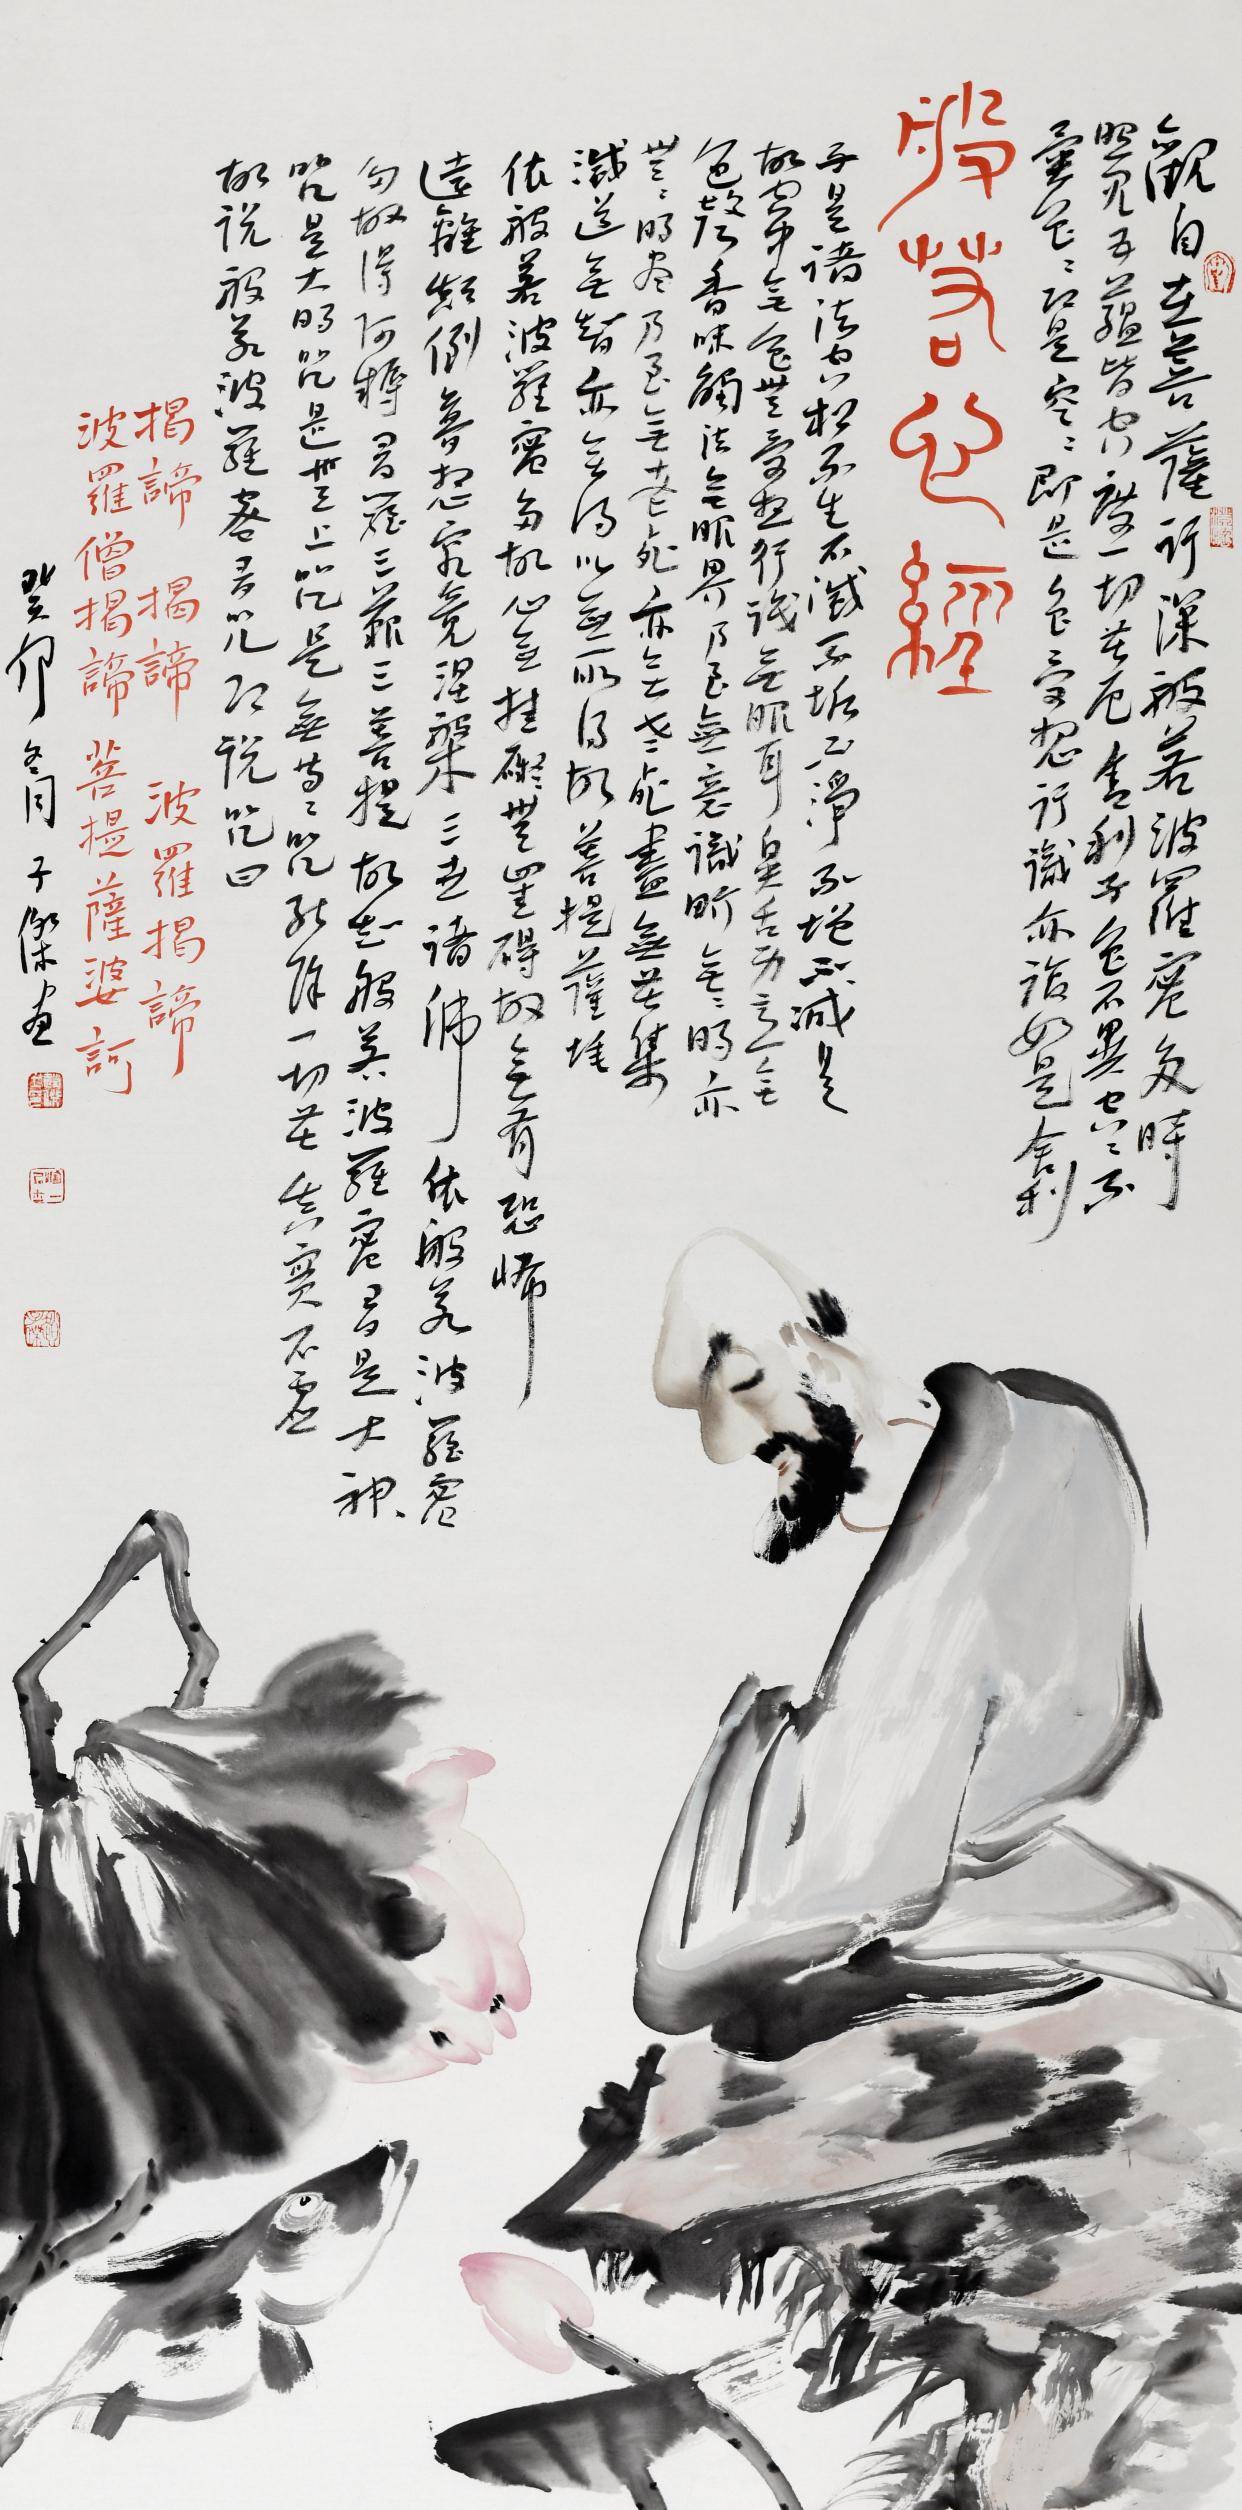 觀自在菩薩行深般若波羅蜜多時
照見五蘊皆空度一切苦厄舍利子色不異空〻不
異色〻即是空〻即是色受想行識亦復如是舍利
般若心經
子是諸法空相不生不滅不垢不淨不增不減是
故空中無色無受想行識無眼耳鼻舌身意無
色聲香味觸法無眼界乃至無意識界無〻明亦
無〻明盡乃至無老死亦無老死盡無苦集
滅道無智亦無得以無所得故菩提薩埵
依般若波羅蜜多故心無挂礙無罣礙故無有恐怖
遠離顛倒夢想究竟涅槃三世諸佛依般若波羅蜜
多故得阿耨多羅三藐三菩提故知般若波羅蜜多是大神
咒是大明咒是無上咒是無等〻咒能除一切苦真實不虛
故說般若波羅蜜多咒即說咒曰
揭諦 揭諦 波羅揭諦
波羅僧揭諦 菩提薩婆訶
癸卯冬月子傑畫